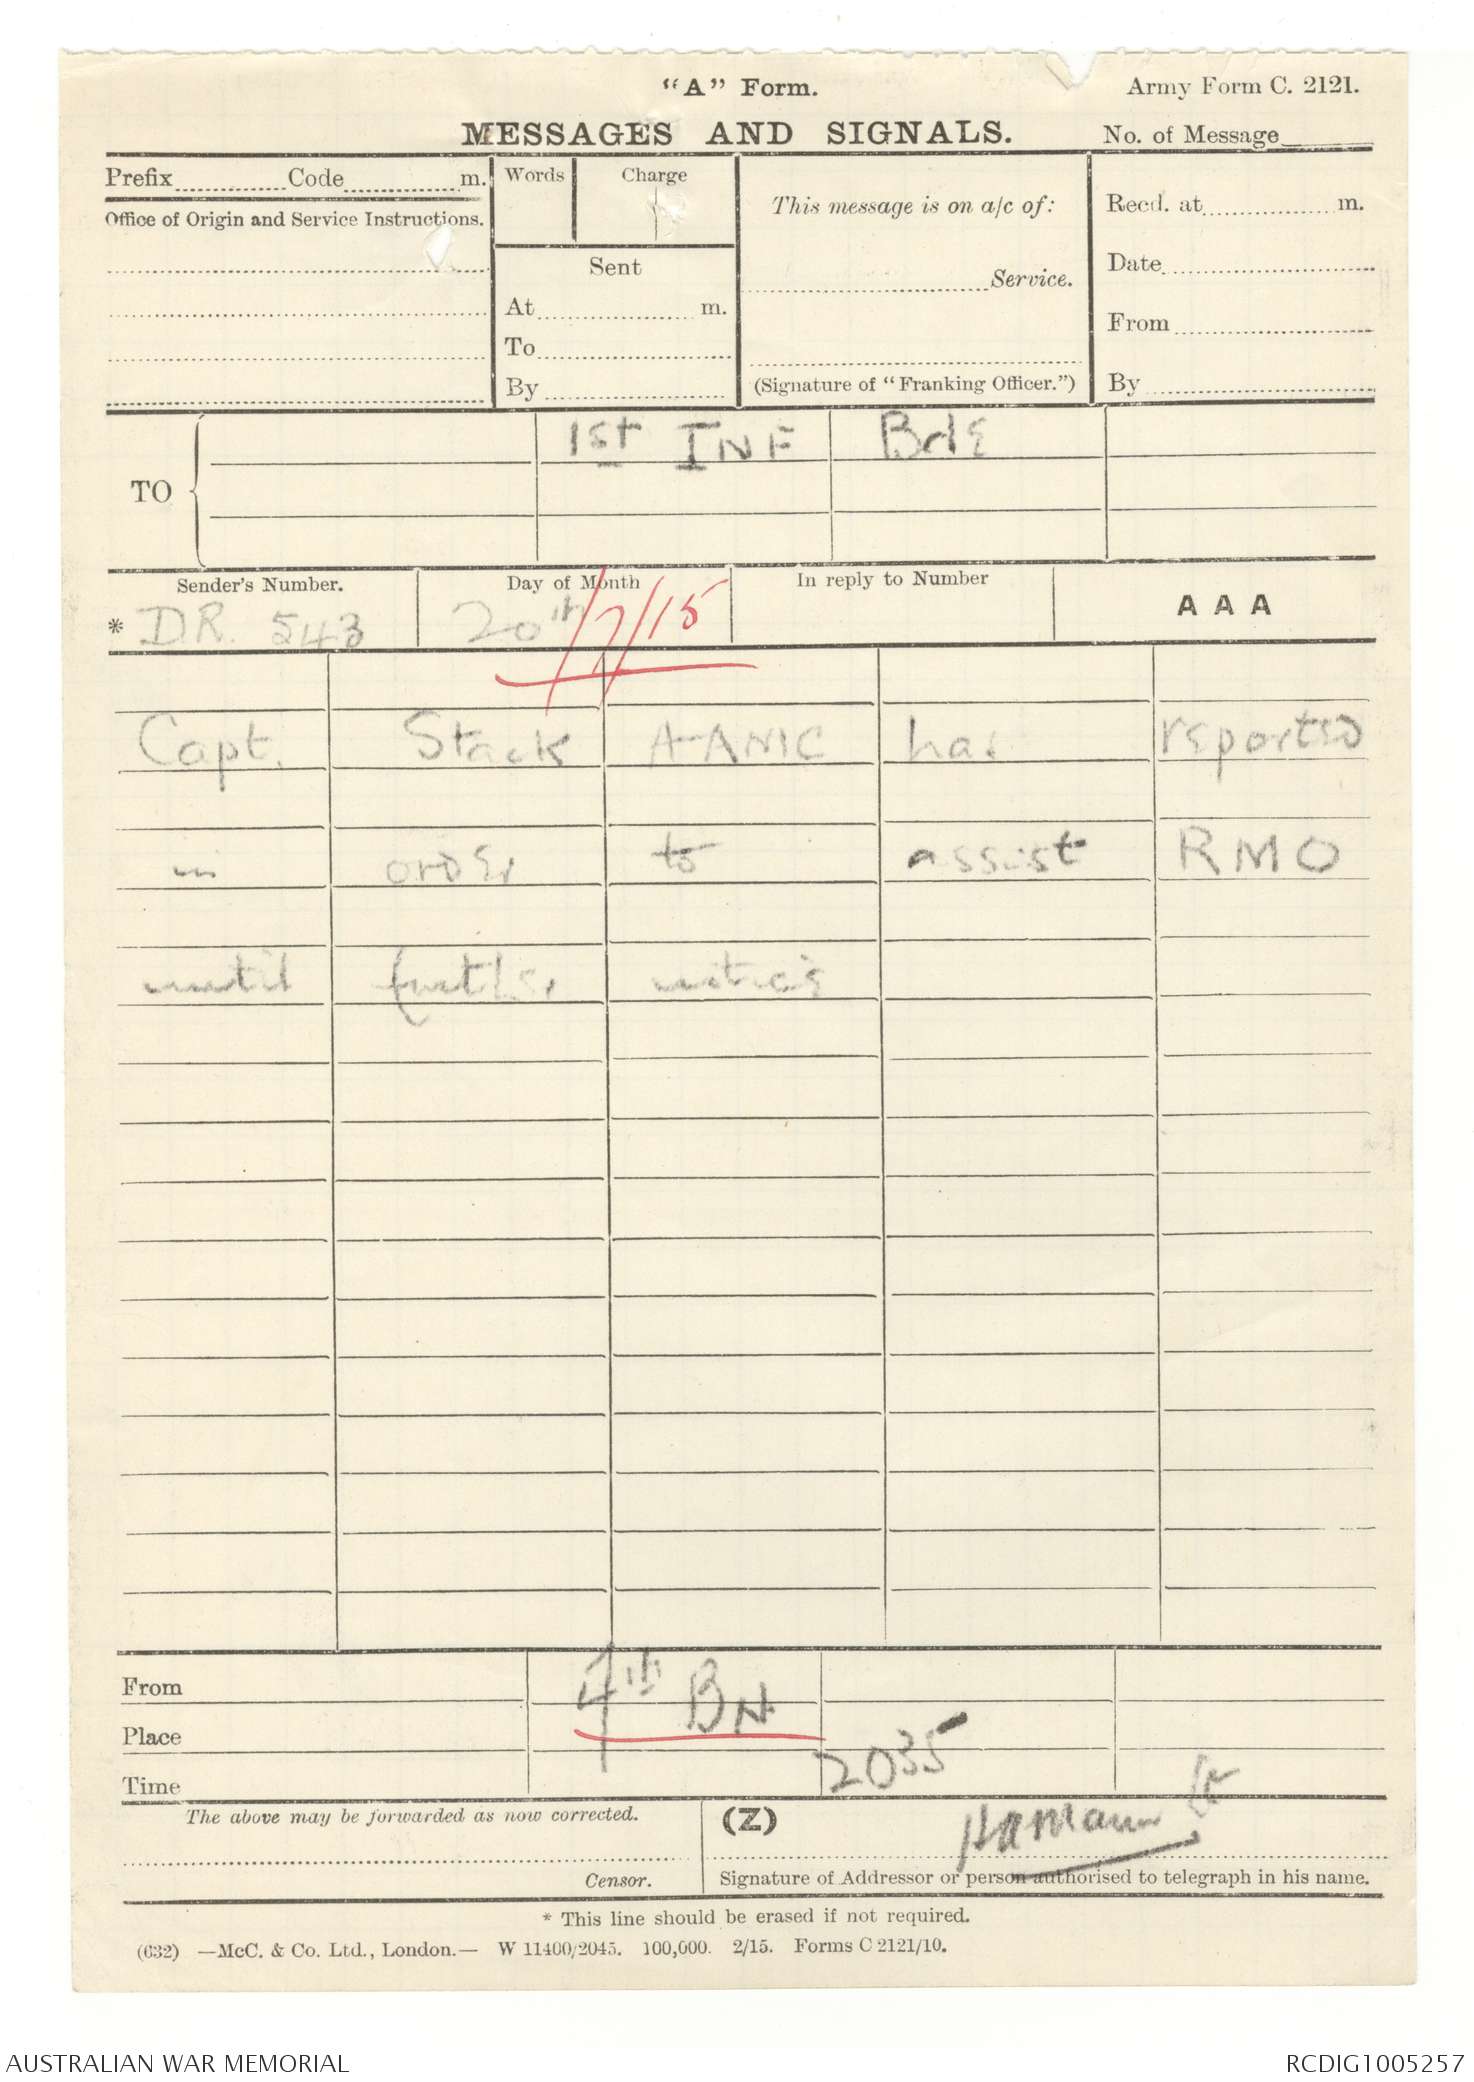 "A" Form.
Army Form C. 2121.
MESSAGES AND SIGNALS.
No. of Message
Prefix Code m.
Words Charge
This message is on a/c of:
Recd. at m.
Office of Origin and Service Instructions.
Sent
Service.
Date
At m.
From
To
By
(Signature of "Franking Officer.")
By
TO
1st INF Bde
Sender's Number. Day of Month In reply to Number
* DR. 543 20th/7/15 AAA
Capt. Stack AAMC has reported
in order to assist RMO
until further notice
From 4th BN
Place
Time 2035
The above may be forwarded as now corrected.
(Z)
Censor.
Signature of Addressor or person authorised to telegraph in his name.
* This line should be erased if not required.
(632) —McC. & Co. Ltd., London.— W 11400/2045. 100,000. 2/15. Forms C 2121/10.
AUSTRALIAN WAR MEMORIAL
RCDIG1005257